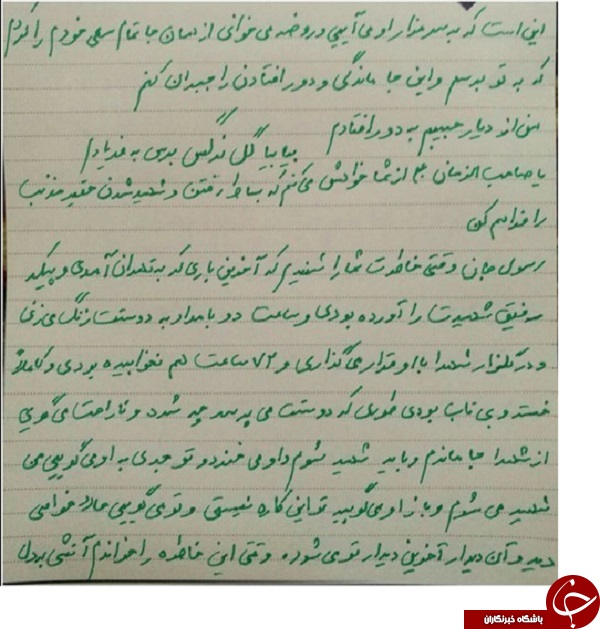 این است که به سر مزار او می آیی و روضه می خوانی از همان جا تمام سعی خودم را کردم
که به تو برسم و این جا ماندگی و دور افتادن را جبران کنم
من از دیار حبیبم به دور افتادم بیا بیا گل نرگس برس به فریادم
یا صاحب الزمان از شما خواهش می کنم که بساط رفتن و شهید شدن حقیر مذنب
را فراهم کن
رسول جان وقتی خاطرت شما را شنیدم که آخرین باری که به تهران آمدی و پیکر
رفیق شهیدت را آورده بودی و ساعت دو بامداد به دوستت زنگ می زنی
و در گلزار شهدا با او قرار می گذاری و ۷۲ ساعت هم نخوابیده بودی و کاملاً
خسته و بی تاب بودی طوری که دوستت می پرسد چه شده و ناراحت می گویی
از شهدا جا ماندم و باید شهید شوم و او می خندد و تو جدی به او می گویی من
شهید می شوم و باز او می گوید تو این کاره نیستی و تو می گویی حالا خواهی
دید و آن دیدار آخرین دیدار تو می شود. وقتی این خاطره را خواندم آتشی بر دل
باشگاه خبرنگاران